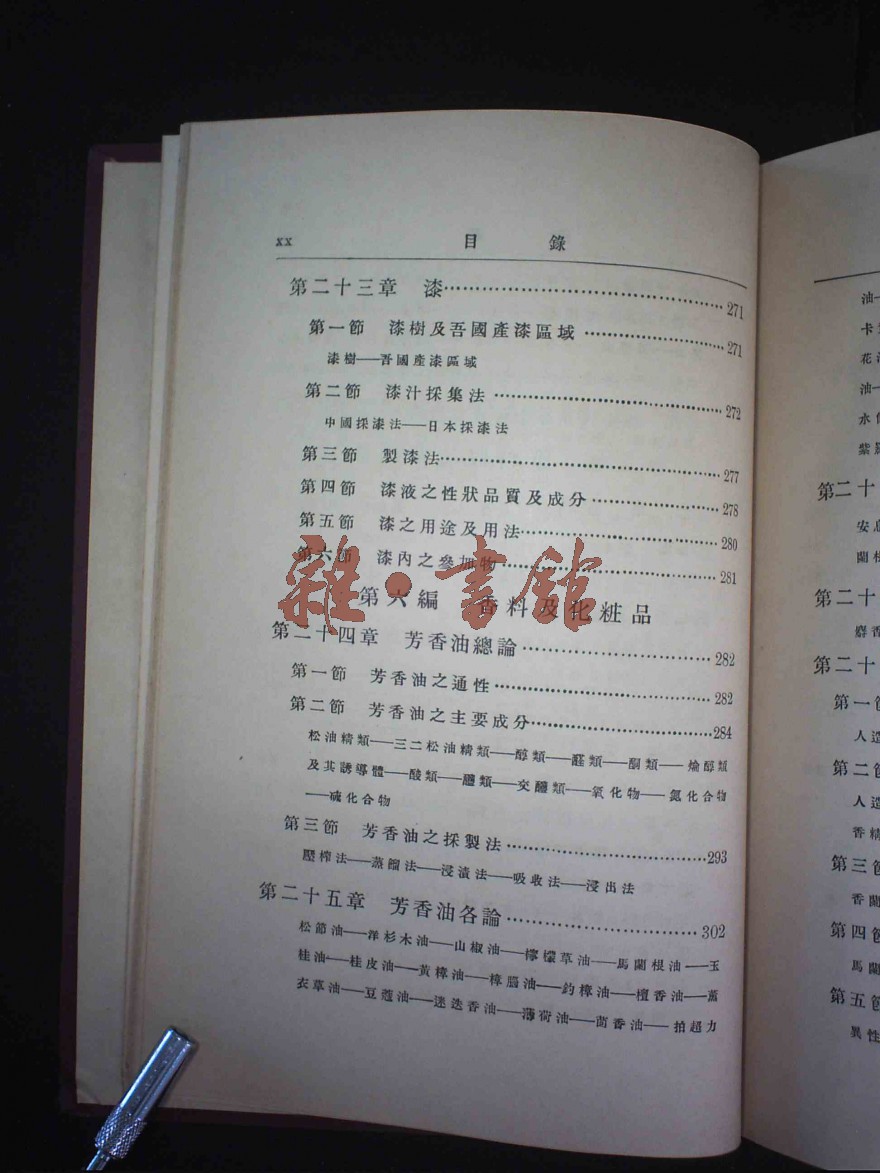 xx 目 錄
第二十三章 漆……271
第一節 漆樹及吾國產漆區域……271
漆樹——吾國產漆區域
第二節 漆汁採集法……272
中國採漆法——日本採漆法
第三節 製漆法……277
第四節 漆液之性狀品質及成分……278
第五節 漆之用途及用法……280
第六節 漆內之參加物……281
雜·書館
第六編 香料及化粧品
第二十四章 芳香油總論……282
第一節 芳香油之通性……282
第二節 芳香油之主要成分……284
松油精類——三二松油精類——醇類——醛類——酮類——焔醇類
及其誘導體——酸類——醴類——交醴類——氧化物——氮化合物
——硫化合物
第三節 芳香油之採製法……293
壓榨法——蒸餾法——浸漬法——吸收法——浸出法
第二十五章 芳香油各論……302
松節油——洋杉木油——山椒油——檸檬草油——馬蘭根油——玉
桂油——桂皮油——黃樟油——樟腦油——釣樟油——檀香油——薰
衣草油——豆蔻油——迷迭香油——薄荷油——茴香油——拍超力
油一
卡
花
油一
水
紫
第二十
安息
蘭
第二十
麝香
第二十
第一節
人造
第二節
人造
香精
第三節
香蘭
第四節
馬蘭
第五節
異性